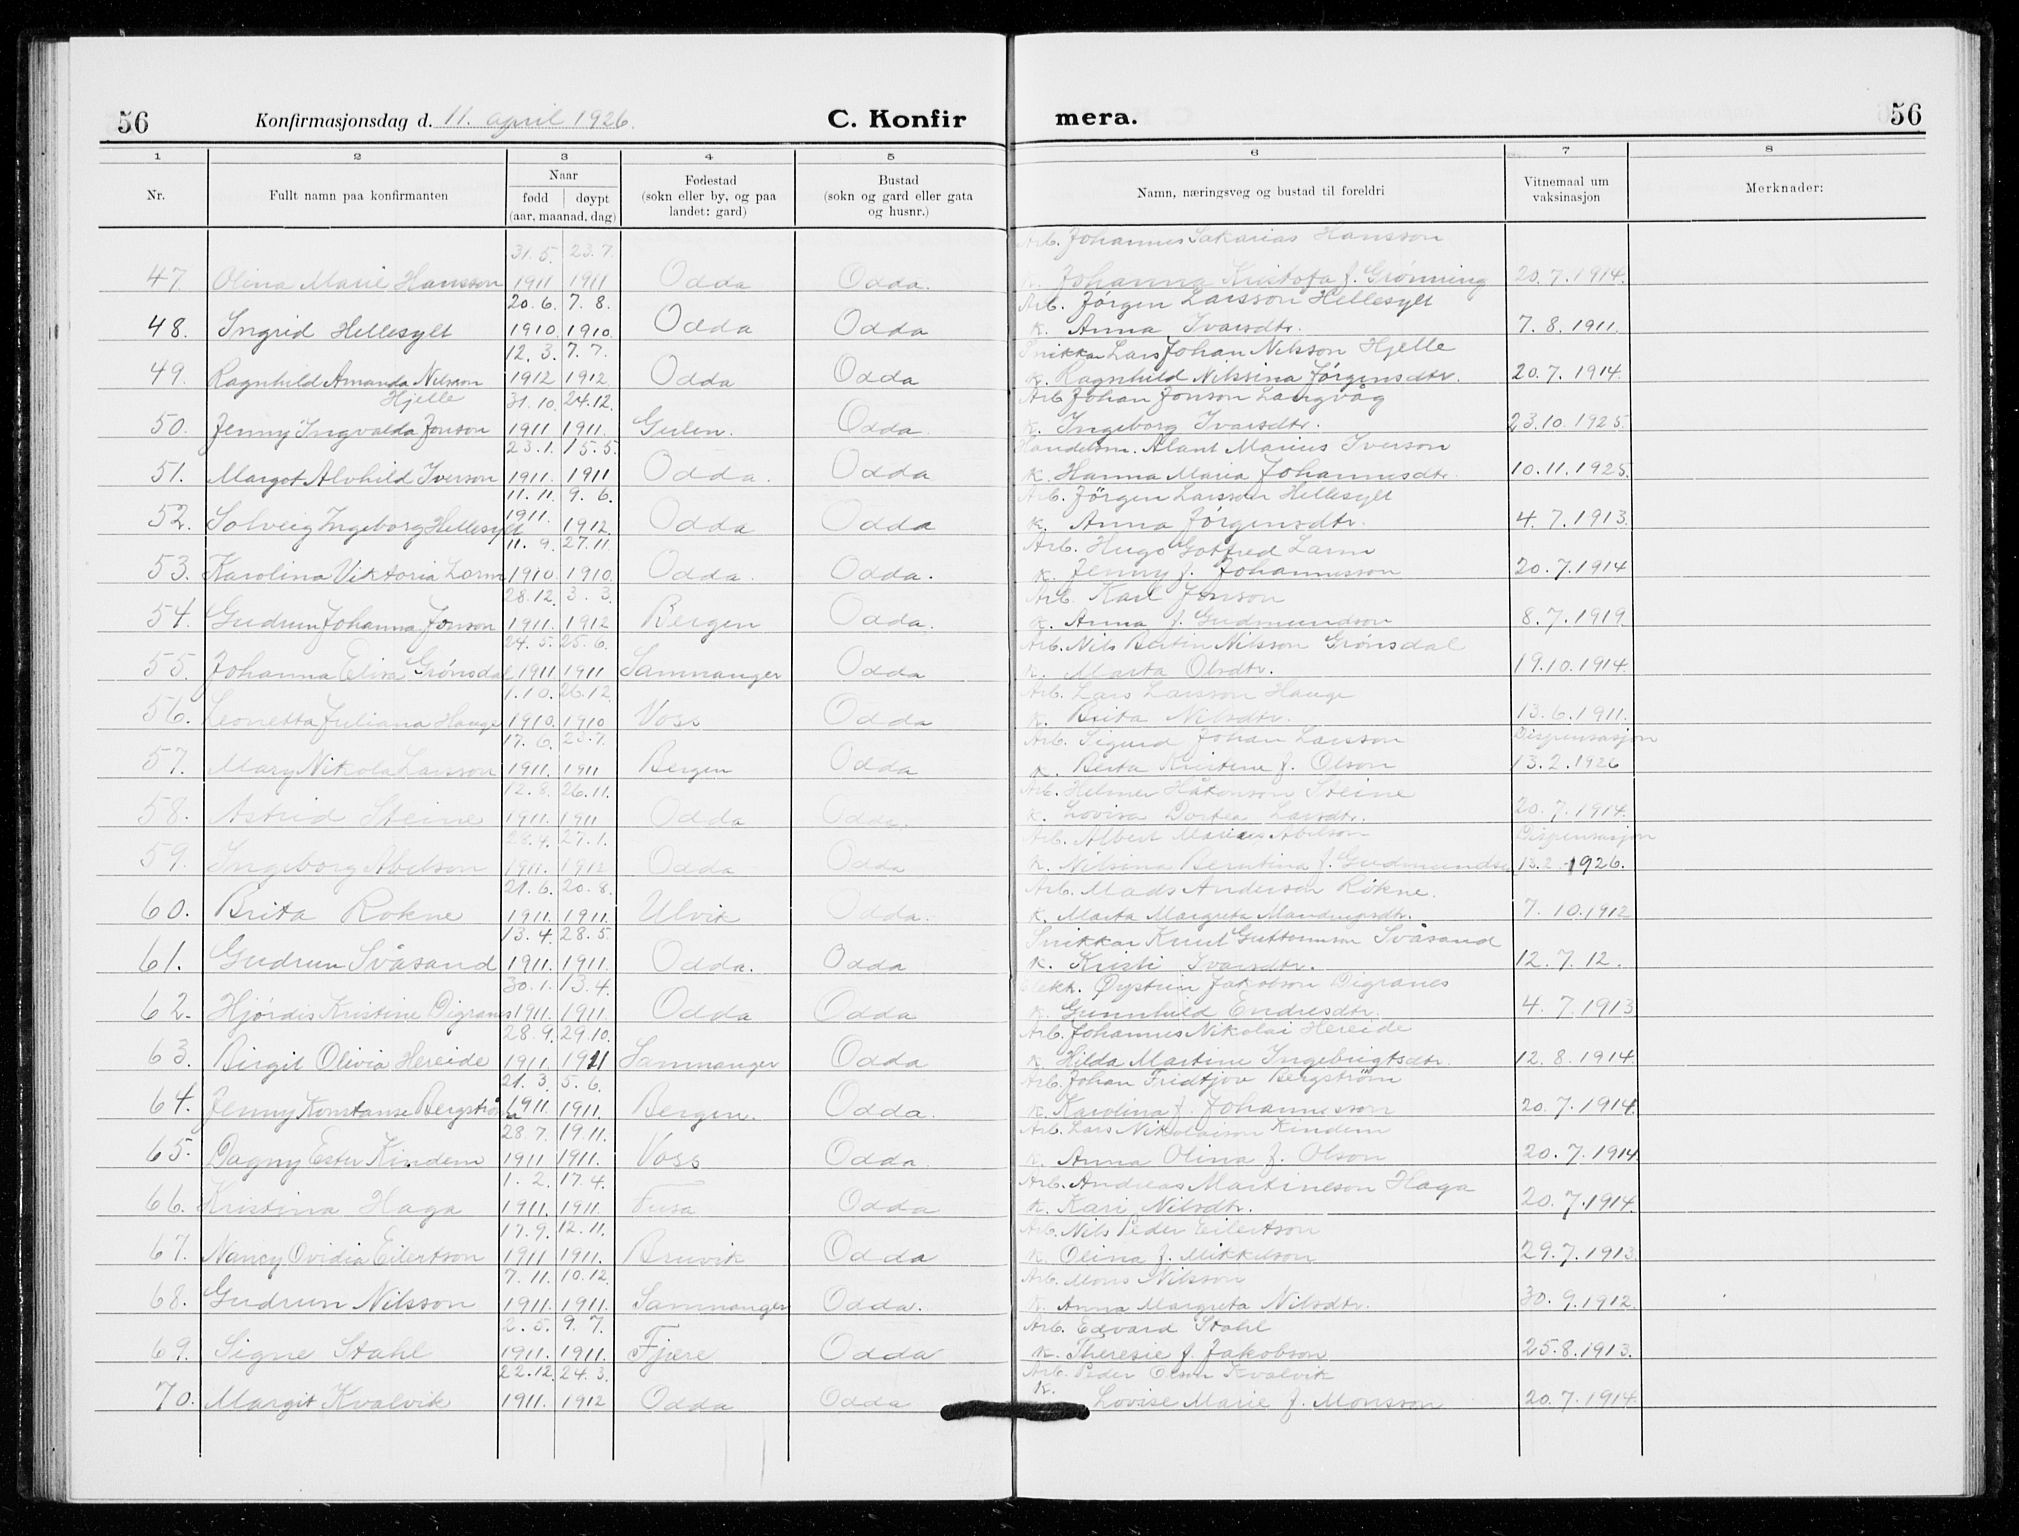 56 Konfirmasjonsdag d. 11. april 1926. C. Konfir mera. 56
1 2 3 4 5 6 7 8
Nr. Fullt namn paa konfirmanten Naar fødd døypt (aar, maanad, dag) Fødestad (sokn eller by, og paa landet: gard) Bustad (sokn og gard eller gata og husnr.) Namn, næringsveg og bustad til foreldri Vitnemaal um vaksinasjon Merknader:
31.5. 23.7. Arb. Johannes Sakarias Hansson
47. Olina Marie Hansson 1911 1911 Odda Odda. k. Johanna Kristofa f. Grønning 20.7.1914.
20.6. 7.8. Arb. Jørgen Larsson Hellesylt
48. Ingrid Hellesylt 1910. 1910. Odda Odda k. Anna Ivarsdtr. 7.8.1911.
12.3. 7.7. Snikkar Lars Johan Nilsson Hjelle
49. Ragnhild Amanda Nilsson Hjelle 1912 1912. Odda Odda k. Ragnhild Nilsina Jørgensdtr. 20.7.1914.
31.10. 24.12. Arb Johan Jonson Langvåg
50. Jenny Ingvalda Jonson 1911 1911. Gulen. Odda. k. Ingeborg Ivarsdtr. 23.10.1925.
23.1. 15.5. Handelsm. Marius Iverson
51. Margot Alvhild Iverson 1911. 1911 Odda. Odda k. Hanna Maria Johannesdtr. 10.11.1925.
11.11. 9.6. Arb. Jørgen Larsson Hellesylt
52. Solveig Ingeborg Hellesylt 1911. 1912. Odda Odda k. Anna Jørgensdtr. 4.7.1913.
11.9. 27.11. Arb. Hugo Gotfred Larm
53. Karolina Viktoria Larm 1910. 1910. Odda. Odda. k. Jenny f. Johannesson 20.7.1914
28.12. 3.3. Arb. Karl Jonson
54. Gudrun Johanna Jonson 1911. 1912 Bergen Odda. k. Anna f. Gudmundson 8.7.1919.
24.5. 25.6. Arb. Nils Bertin Nilsson Grønsdal
55. Johanna Elisa Grønsdal 1911 1911 Sammanger Odda k. Marta Olsdtr. 19.10.1914.
1.10. 26.12 Arb. Lars Larsson Hauge
56. Leonetta Juliana Hauge 1910. 1910 Voss Odda k. Brita Nilsdtr. 13.6.1911.
17.6. 23.7. Arb. Sigurd Johan Larsson Dispensasjon
57. Mary Nikola Larsson 1911. 1911 Bergen Odda k. Berta Kristine f. Olson 13.2.1926
12.8. 26.11. Arb. Helmer Håkonson Steine
58. Astrid Steine 1911. 1911 Odda Odda. k. Lovisa Dortea Larsdtr. 20.7.1914.
28.4. 27.1. Arb. Albert Marius Abelson Dispensasjon
59. Ingeborg Abelson 1911. 1912 Odda Odda k. Nilsina Berntina f. Gudmundsen 13.2.1926.
21.6. 20.8. Arb. Mads Anderson Rokne.
60. Brita Rokne 1911. 1911. Ulvik Odda. k. Marta Margreta 7.10.1912
13.4. 28.5. Snikkar Knut Guttormson Svåsand
61. Gudrun Svåsand 1911. 1911. Odda. Odda k. Kristi Ivarsdtr. 12.7.12.
30.1. 13.4. Elekk. Øystein Jakobson Digranes
62. Hjørdis Kristine Digranes 1911. 1911. Odda Odda k. Gunnhild Endresdtr. 4.7.1913
28.9. 29.10. Arb. Johannes Nikolai Hereide
63. Birgit Olivia Hereide 1911. 1911 Sammanger Odda k. Hilda Martine Ingebrigtsdtr. 12.8.1914.
21.3. 5.6. Arb. Johan Fridtjov Bergstrøm
64. Jenny Konstanse Bergstrøm 1911. 1911. Bergen. Odda. k. Karolina f. Johannesson 20.7.1914.
28.7. 19.11. Arb. Lars Nikolaison Kindem
65. Dagny Ester Kindem 1911 1911. Voss Odda k. Anna Olina f. Olson 20.7.1914
1.2. 17.4. Arb. Andreas Martinson Haga
66. Kristina Haga 1911. 1911. Fusa Odda k. Kari Nilsdtr. 20.7.1914.
17.9. 12.11. Arb. Nils Peder Eilertson
67. Nancy Ovidia Eilertson 1911 1911. Bruvik Odda k. Olina f. Mikkelson 29.7.1913.
7.11. 10.12. Arb. Mons Nilsson
68. Gudrun Nilsson 1911. 1911. Sammanger Odda. k. Anna Margreta Nilsdtr. 30.9.1912.
2.5. 9.7. Arb. Edvard Stahl
69. Signe Stahl 1911. 1911. Fjære Odda k. Theresie f. Jakobson 25.8.1913.
22.12. 24.3. Arb. Peder Olson Kvalvik
70. Margit Kvalvik 1911. 1912 Odda Odda k. Lovise Marie f. Monsson 20.7.1914